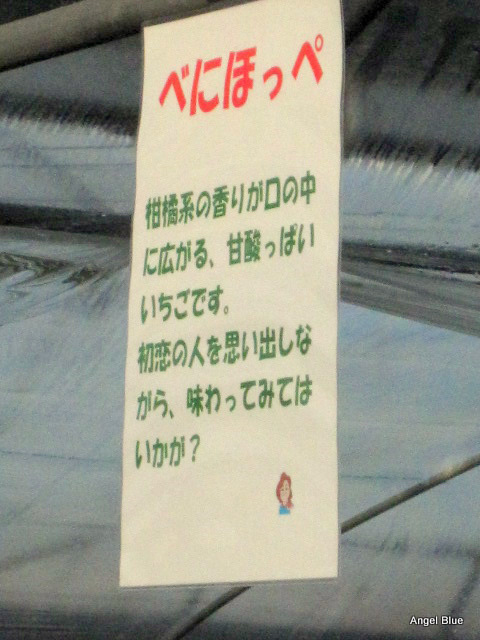 べにほっぺ
柑橘系の香りが口の中
に広がる、甘酸っぱい
いちごです。
初恋の人を思い出しな
がら、味わってみては
いかが？
Angel Blue